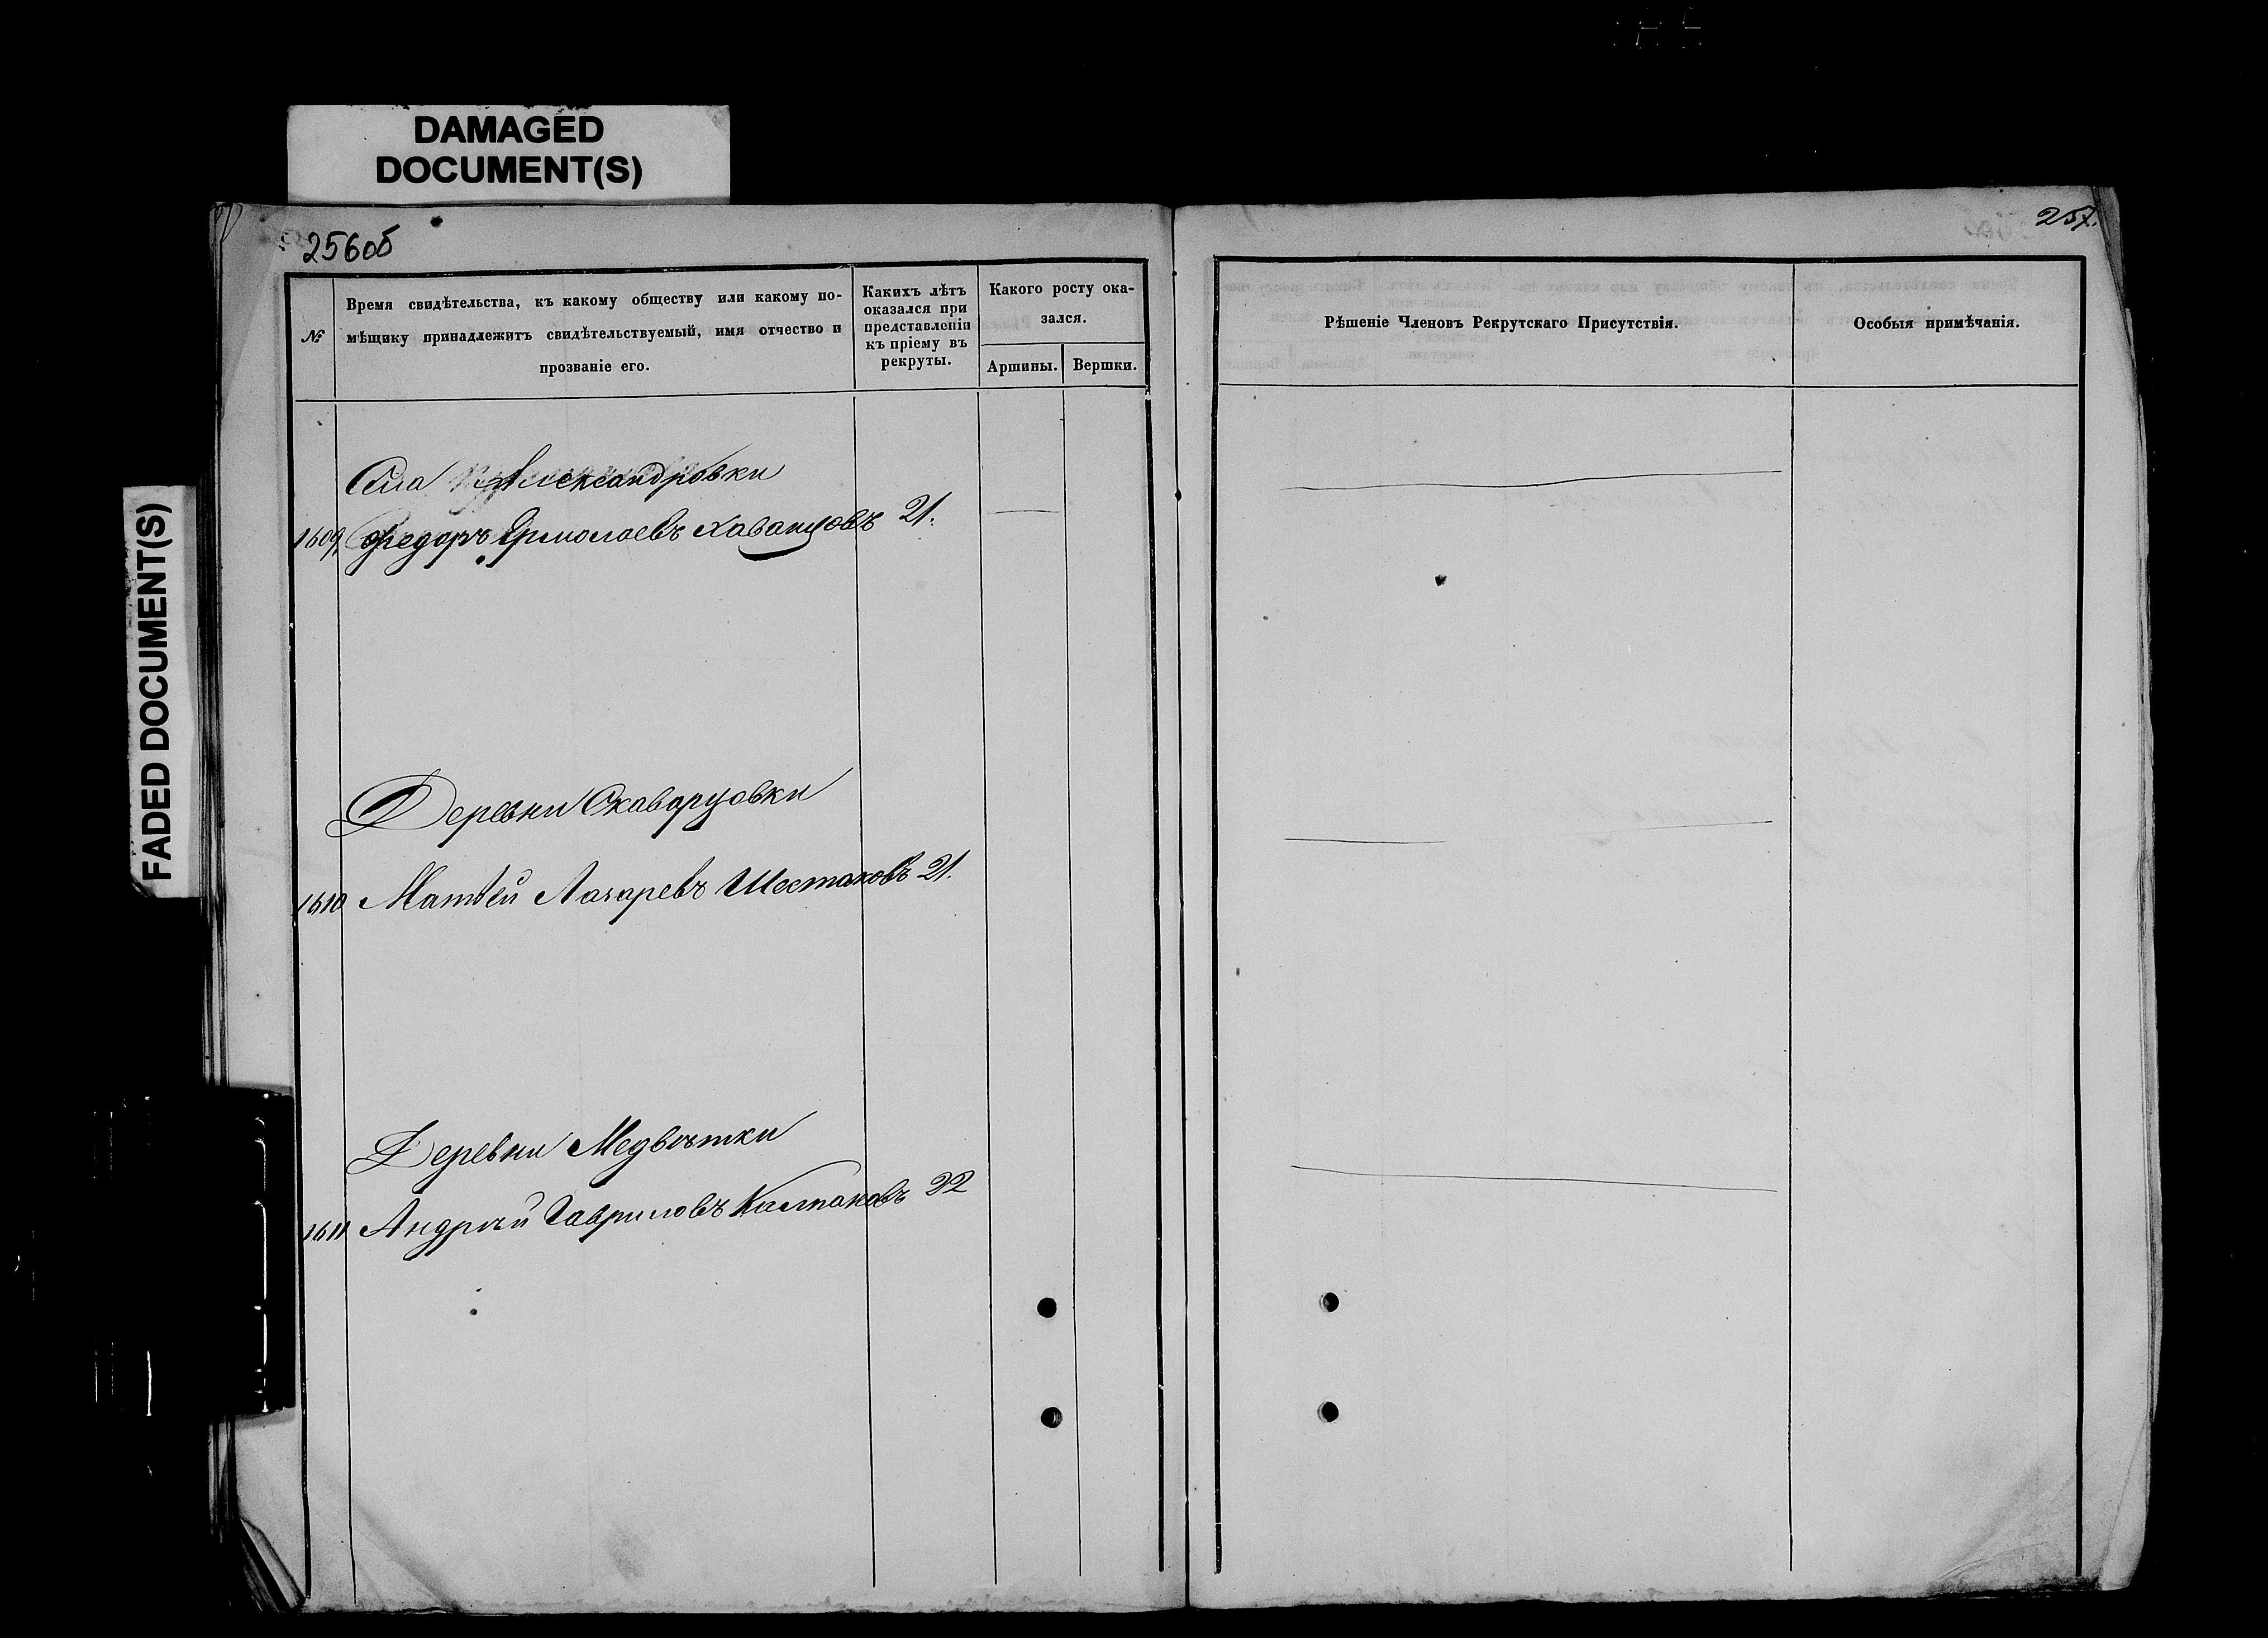 DAMAGED
DOCUMENT(S)
FADED DOCUMENT(S)
256об
№
Время свидѣтельства, къ какому обществу или какому по-
мѣщику принадлежитъ свидѣтельствуемый, имя отчество и
прозваніе его.
Какихъ лѣтъ
оказался при
представленіи
къ пріему въ
рекруты.
Какого росту ока-
зался.
Аршины.
Вершки.
Села Александровки
1609 Федоръ Ермолаевъ Хаванцовъ 21.
Деревни Скаварцовки
1610 Матвѣй Лазаревъ Шестаковъ 21.
Деревни Медвѣтки
1611 Андрѣй Гавриловъ Калпаковъ 22
257.
Рѣшеніе Членовъ Рекрутскаго Присутствія.
Особыя примѣчанія.